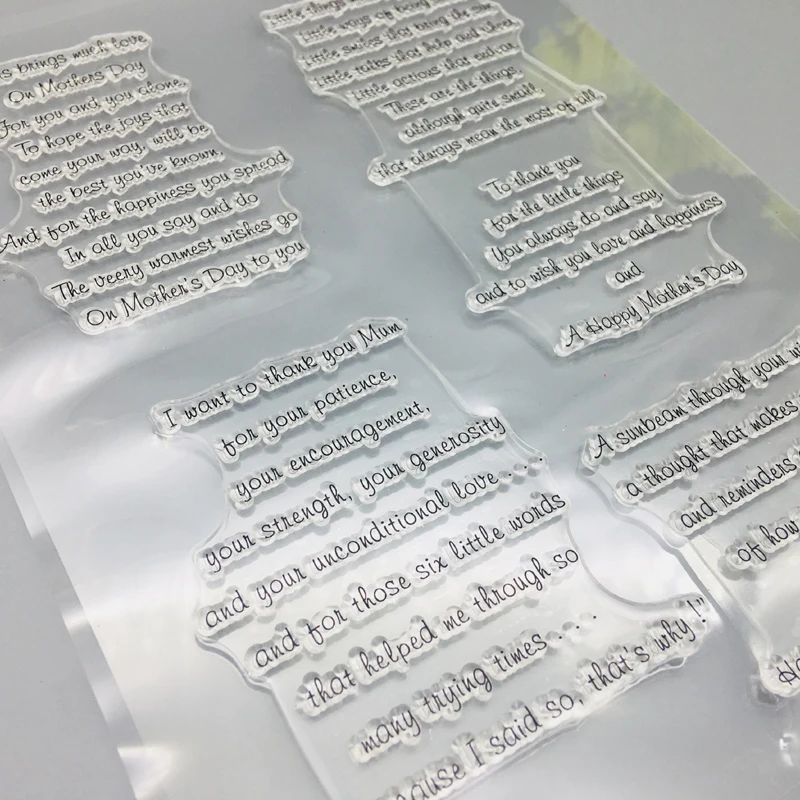 brings much love
On Mothers Day
For you and you alone,
To hope the joys that
come your way, will be
the best you've known,
And for the happiness you spread
In all you say and do
The veery warmest wishes go
On Mother's Day to you
Little things
Little ways of being
Little smiles that bring the sun
Little talks that help and cheer
Little actions that endear,
These are the things,
although quite small,
that always mean the most of all
To thank you
for the little things
You always do and say,
and to wish you love and happiness
and
A Happy Mother's Day
I want to thank you Mum
for your patience,
your encouragement,
your strength, your generosity
and your unconditional love . . . .
and for those six little words
that helped me through so
many trying times . . . .
I said so, that's why !"
A sunbeam through your
a thought that makes
and reminders
of how